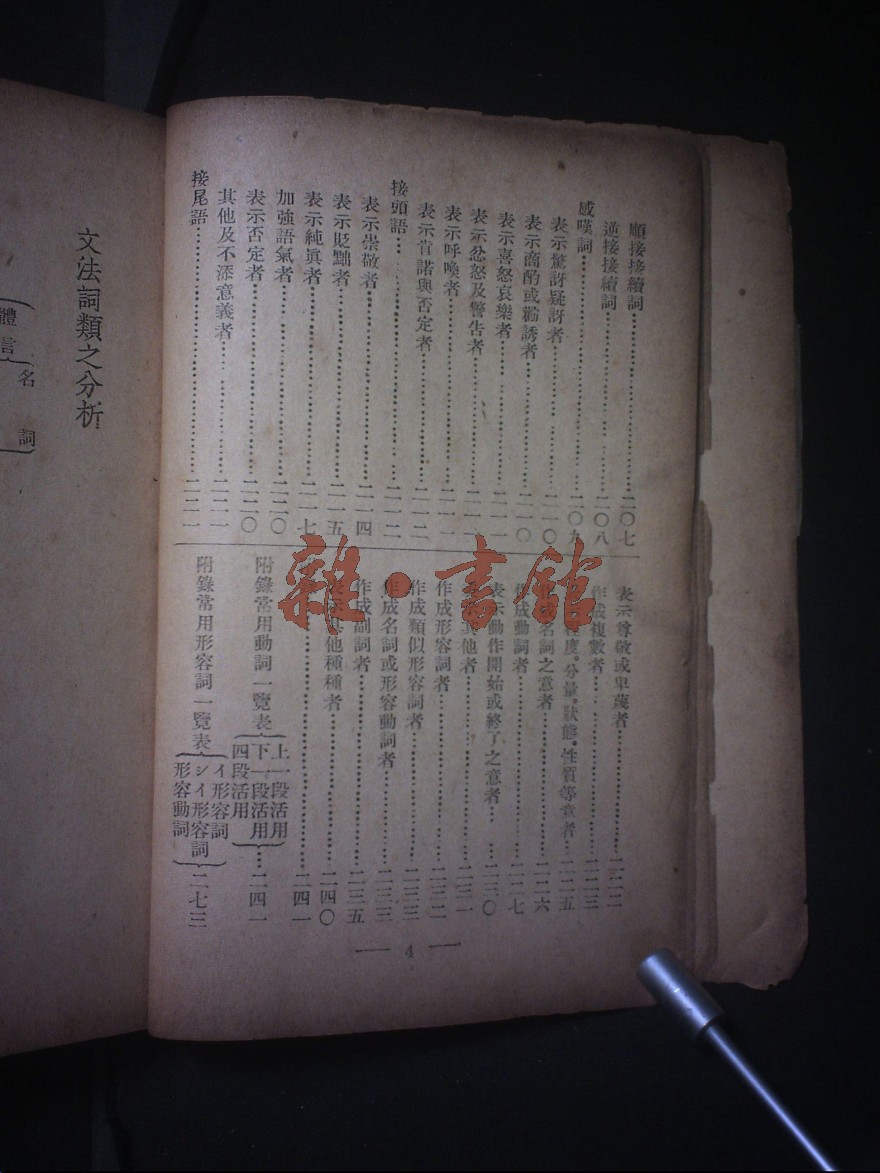 順接接續詞……二〇七
逆接接續詞……二〇八
感嘆詞……二〇九
表示驚訝疑訝者……二一〇
表示商酌或勸誘者……二一〇
表示喜怒哀樂者……二一一
表示忿怒及警告者……二一一
表示呼喚者……二一一
表示肯諾與否定者……二一二
接頭語……二一二
表示崇敬者……二一四
表示貶黜者……二一五
表示純眞者……二一七
加強語氣者……二二〇
表示否定者……二二〇
其他及不添意義者……二二一
接尾語……二二一
表示尊敬或卑蔑者……二二二
作成複數者……二二三
程度。分量。狀態。性質等意者……二二五
名詞之意者……二二六
成動詞者……二二七
表示動作開始或終了之意者……二三〇
其他者……二三一
作成形容詞者……二三二
作成類似形容詞者……二三三
作成名詞或形容動詞者……二三三
作成副詞者……二三五
表示其他種種者……二四〇
……二四一
附錄常用動詞一覽表
上一段活用
下一段活用
四段活用
……二四一
附錄常用形容詞一覽表
イ形容詞
シイ形容詞
形容動詞
……二七三
— 4 —
文法詞類之分析
體言
名詞
雜·書館